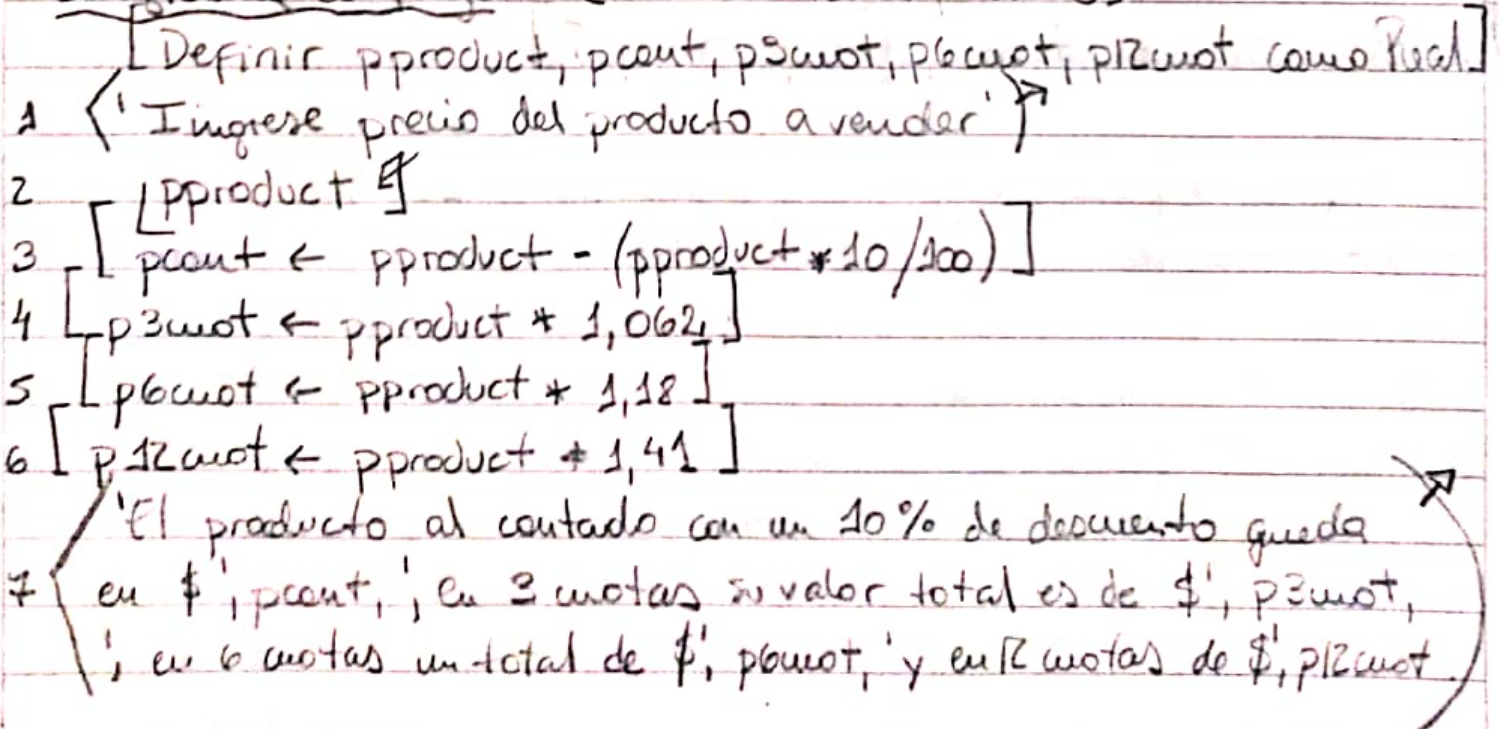 [Definir pproduct, pcont, p3cuot, p6cuot, p12cuot como Real]
1 'Ingrese precio del producto a vender'
2 pproduct
3 [pcont ← pproduct - (pproduct * 10/100)]
4 [p3cuot ← pproduct * 1,062]
5 [p6cuot ← pproduct * 1,18]
6 [p12cuot ← pproduct * 1,41]
'El producto al contado con un 10% de descuento queda
7 en $', pcont, ', en 3 cuotas su valor total es de $', p3cuot,
', en 6 cuotas un total de $', p6cuot, 'y en 12 cuotas de $', p12cuot